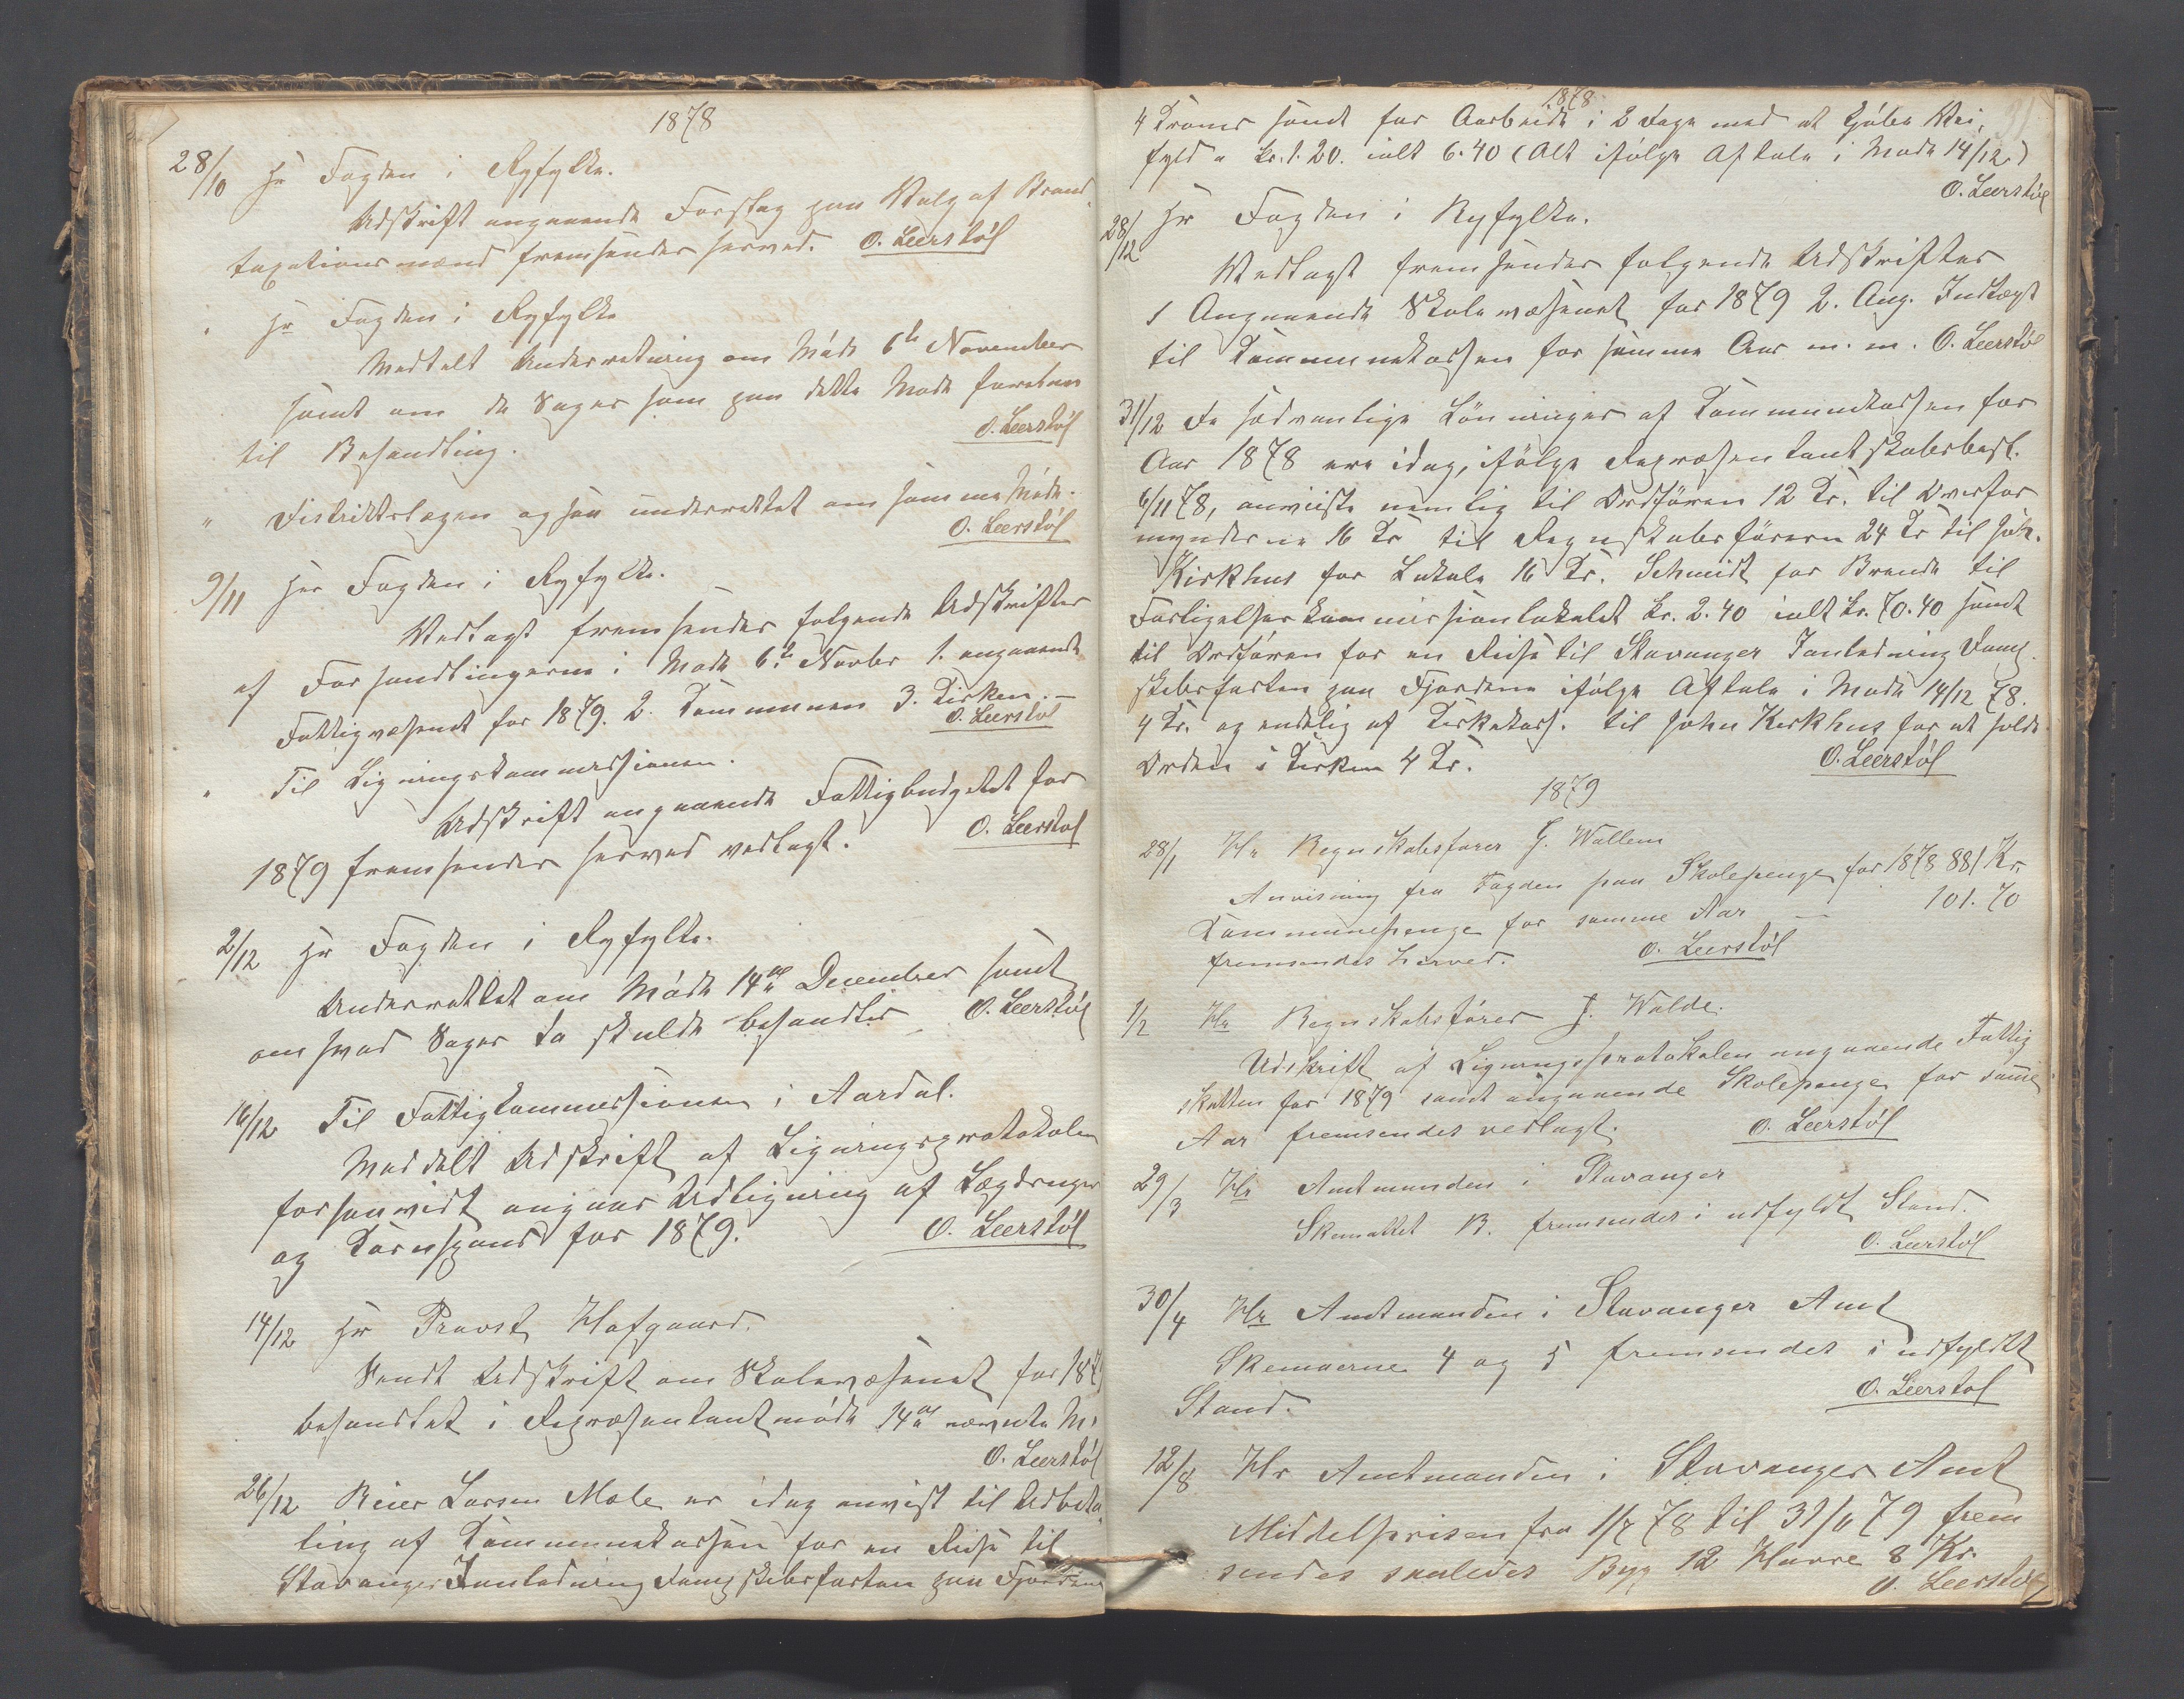 1878
28/10 Hr Fogden i Ryfylke.
Udskrift angaaende Forslag paa Valg af Brand-
taxationsmænd fremsendes herved. O. Leerstøl
" Hr Fogden i Ryfylke
Meddelt Underretning om Møde 6te November
samt om de Sager som paa dette Møde foretages
til Behandling. O. Leerstøl
" Distriktslægen ogsaa underrettet om samme Møde.
O. Leerstøl
9/11 Herr Fogden i Ryfylke.
Vedlagt fremsendes følgende Udskrifter
af Forhandlingerne i Møde 6te Novbr 1. angaaende
Fattigvæsenet for 1879. 2. Kommunen 3. Kirken. –
O. Leerstøl
" Til Ligningskommissionen.
Udskrift angaaende Fattigbudgettet for
1879 fremsendes herved vedlagt. O. Leerstøl
2/12 Hr Fogden i Ryfylke.
Underrettet om Møde 14de December samt
om hvad Sager da skulde behandles O. Leerstøl
16/12 Til Fattigkommissionen i Aardal.
Meddelt Udskrift af Ligningsprotokolen
forsaavidt angaar Udligning af Lægdspenger
og Kornspand for 1879. O. Leerstøl
14/12 Hr Provst Hofgaard.
Sendt Udskrift om Skolevæsenet for 1879
behandlet i Repræsentantmøde 14de nævnte M.
O. Leerstøl
26/12 Reier Larsen Mæle er idag anvist til Udbeta-
ling af Kommunekassen for en Reise til
Stavanger Ianledning Dampskibsfarten paa Fjordene
1878
31
4 Kroner samt for Aarbeide i 2 Dage med at kjøbe Vei,
fyld a Kr. 1.20. ialt 6.40 (Alt ifølge Aftale i Møde 14/12.)
O. Leerstøl
28/12 Hr Fogden i Ryfylke.
Vedlagt fremsendes følgende Udskrifter
1 Angaaende Skolevæsenet for 1879 2. Ang. Indtægt
til Kommunekassen for samme Aar m. m. O. Leerstøl
31/12 De sædvanlige Lønninger af Kommunekassen for
Aar 1878 ere idag, ifølge Repræsentantskabsbesl.
6/11 78, anviiste nemlig til Ordføreren 12 Kr. til Overfor
mynderne 16 Kr til Regnskabsføreren 24 Kr til Joh.
Kirkhus for Lokale 16 Kr. Schmidt for Brænde til
Forligelseskommissionslokalet Kr. 2.40 ialt Kr. 70.40 samt
til Ordføren for en Reise til Stavanger Ianledning Damp
skibsfarten paa Fjordene ifølge Aftale i Møde 14/12 78.
4 Kr. og endelig af Kirkekass. til John Kirkhus for at holde
Orden i Kirken 4 Kr. O. Leerstøl
1879
28/1 Hr Regnskabsfører G. Wallem
Anvisning fra Fogden paa Skolepenge for 1878 881 Kr.
Kommunepenge for samme Aar – 101.70
fremsendes herved. O. Leerstøl
1/2 Hr Regnskabsfører J. Walde.
Udskrift af Ligningsprotokolen angaaende Fattig
skatten for 1879 samt angaaende Skolepenge for samme
Aar fremsendes vedlagt. O. Leerstøl
29/3 Hr Amtmanden i Stavanger
Skemattet B. fremsendes i udfyldt Stand.
O. Leerstøl
30/4 Hr Amtmanden i Stavanger Amt
Skemaerne 4 og 5 fremsendes i udfyldt
Stand. O. Leerstøl
12/8 Hr Amtmanden i Stavanger Amt
Middelprisen fra 1/7 78 til 31/6 79 frem
sendes saaledes Byg 12 Havre 8 Kr.
O. Leerstøl